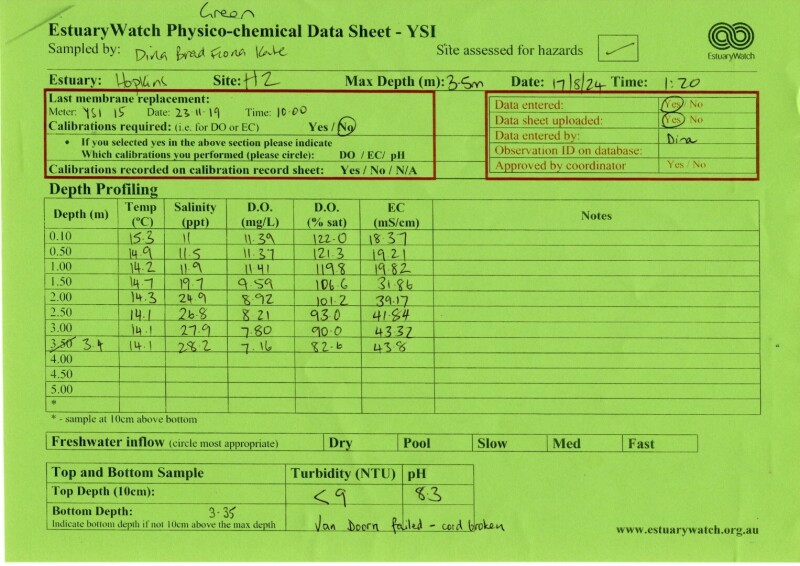 Green
EstuaryWatch Physico-chemical Data Sheet - YSI
Sampled by: Dina Brad Fiona Kate
Site assessed for hazards ✓
EstuaryWatch
Estuary: Hopkins Site: H2 Max Depth (m): 3.5m Date: 17/8/24 Time: 1:20
Last membrane replacement:
Meter: YSI 15 Date: 23.11.19 Time: 10:00
Calibrations required: (i.e. for DO or EC) Yes / No
• If you selected yes in the above section please indicate
Which calibrations you performed (please circle): DO / EC/ pH
Calibrations recorded on calibration record sheet: Yes / No / N/A
Data entered: Yes / No
Data sheet uploaded: Yes / No
Data entered by: Dina
Observation ID on database:
Approved by coordinator Yes / No
Depth Profiling
Depth (m) Temp (ºC) Salinity (ppt) D.O. (mg/L) D.O. (% sat) EC (mS/cm) Notes
0.10 15.3 11 11.39 122.0 18.37
0.50 14.9 11.5 11.37 121.3 19.21
1.00 14.2 11.9 11.41 119.8 19.82
1.50 14.7 19.7 9.59 106.6 31.86
2.00 14.3 24.9 8.92 101.2 39.17
2.50 14.1 26.8 8.21 93.0 41.84
3.00 14.1 27.9 7.80 90.0 43.32
3.50 3.4 14.1 28.2 7.16 82.6 43.8
4.00
4.50
5.00
*
* - sample at 10cm above bottom
Freshwater inflow (circle most appropriate) Dry Pool Slow Med Fast
Top and Bottom Sample Turbidity (NTU) pH
Top Depth (10cm): <9 8.3
Bottom Depth: 3.35
Indicate bottom depth if not 10cm above the max depth
Van Doorn failed - cord broken
www.estuarywatch.org.au